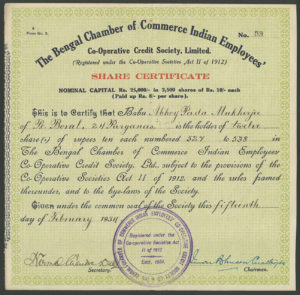 Form No. 3.
No. 53
The Bengal Chamber of Commerce Indian Employees'
Co-Operative Credit Society, Limited.
(Registered under the Co-operative Societies Act II of 1912)
SHARE CERTIFICATE
NOMINAL CAPITAL Rs. 25,000/- in 2,500 shares of Rs. 10/- each
(Paid up Rs. 8/- per share).
This is to Certify that Babu Abhoy Pada Mukherjee
of Boral, 24 Parganas is the holder of twelve
share(s) of rupees ten each numbered 527 to 538 in
The Bengal Chamber of Commerce Indian Employees'
Co-Operative Credit Society, Ltd., subject to the provisions of the
Co-Operative Societies Act II of 1912, and the rules framed
thereunder, and to the bye-laws of the Society.
Given under the common seal of the Society this fifteenth
day of February 1934
Registered under the
Co-operative Societies Act
II of 1912
Estd. 1924.
Secretary.
Chairman.